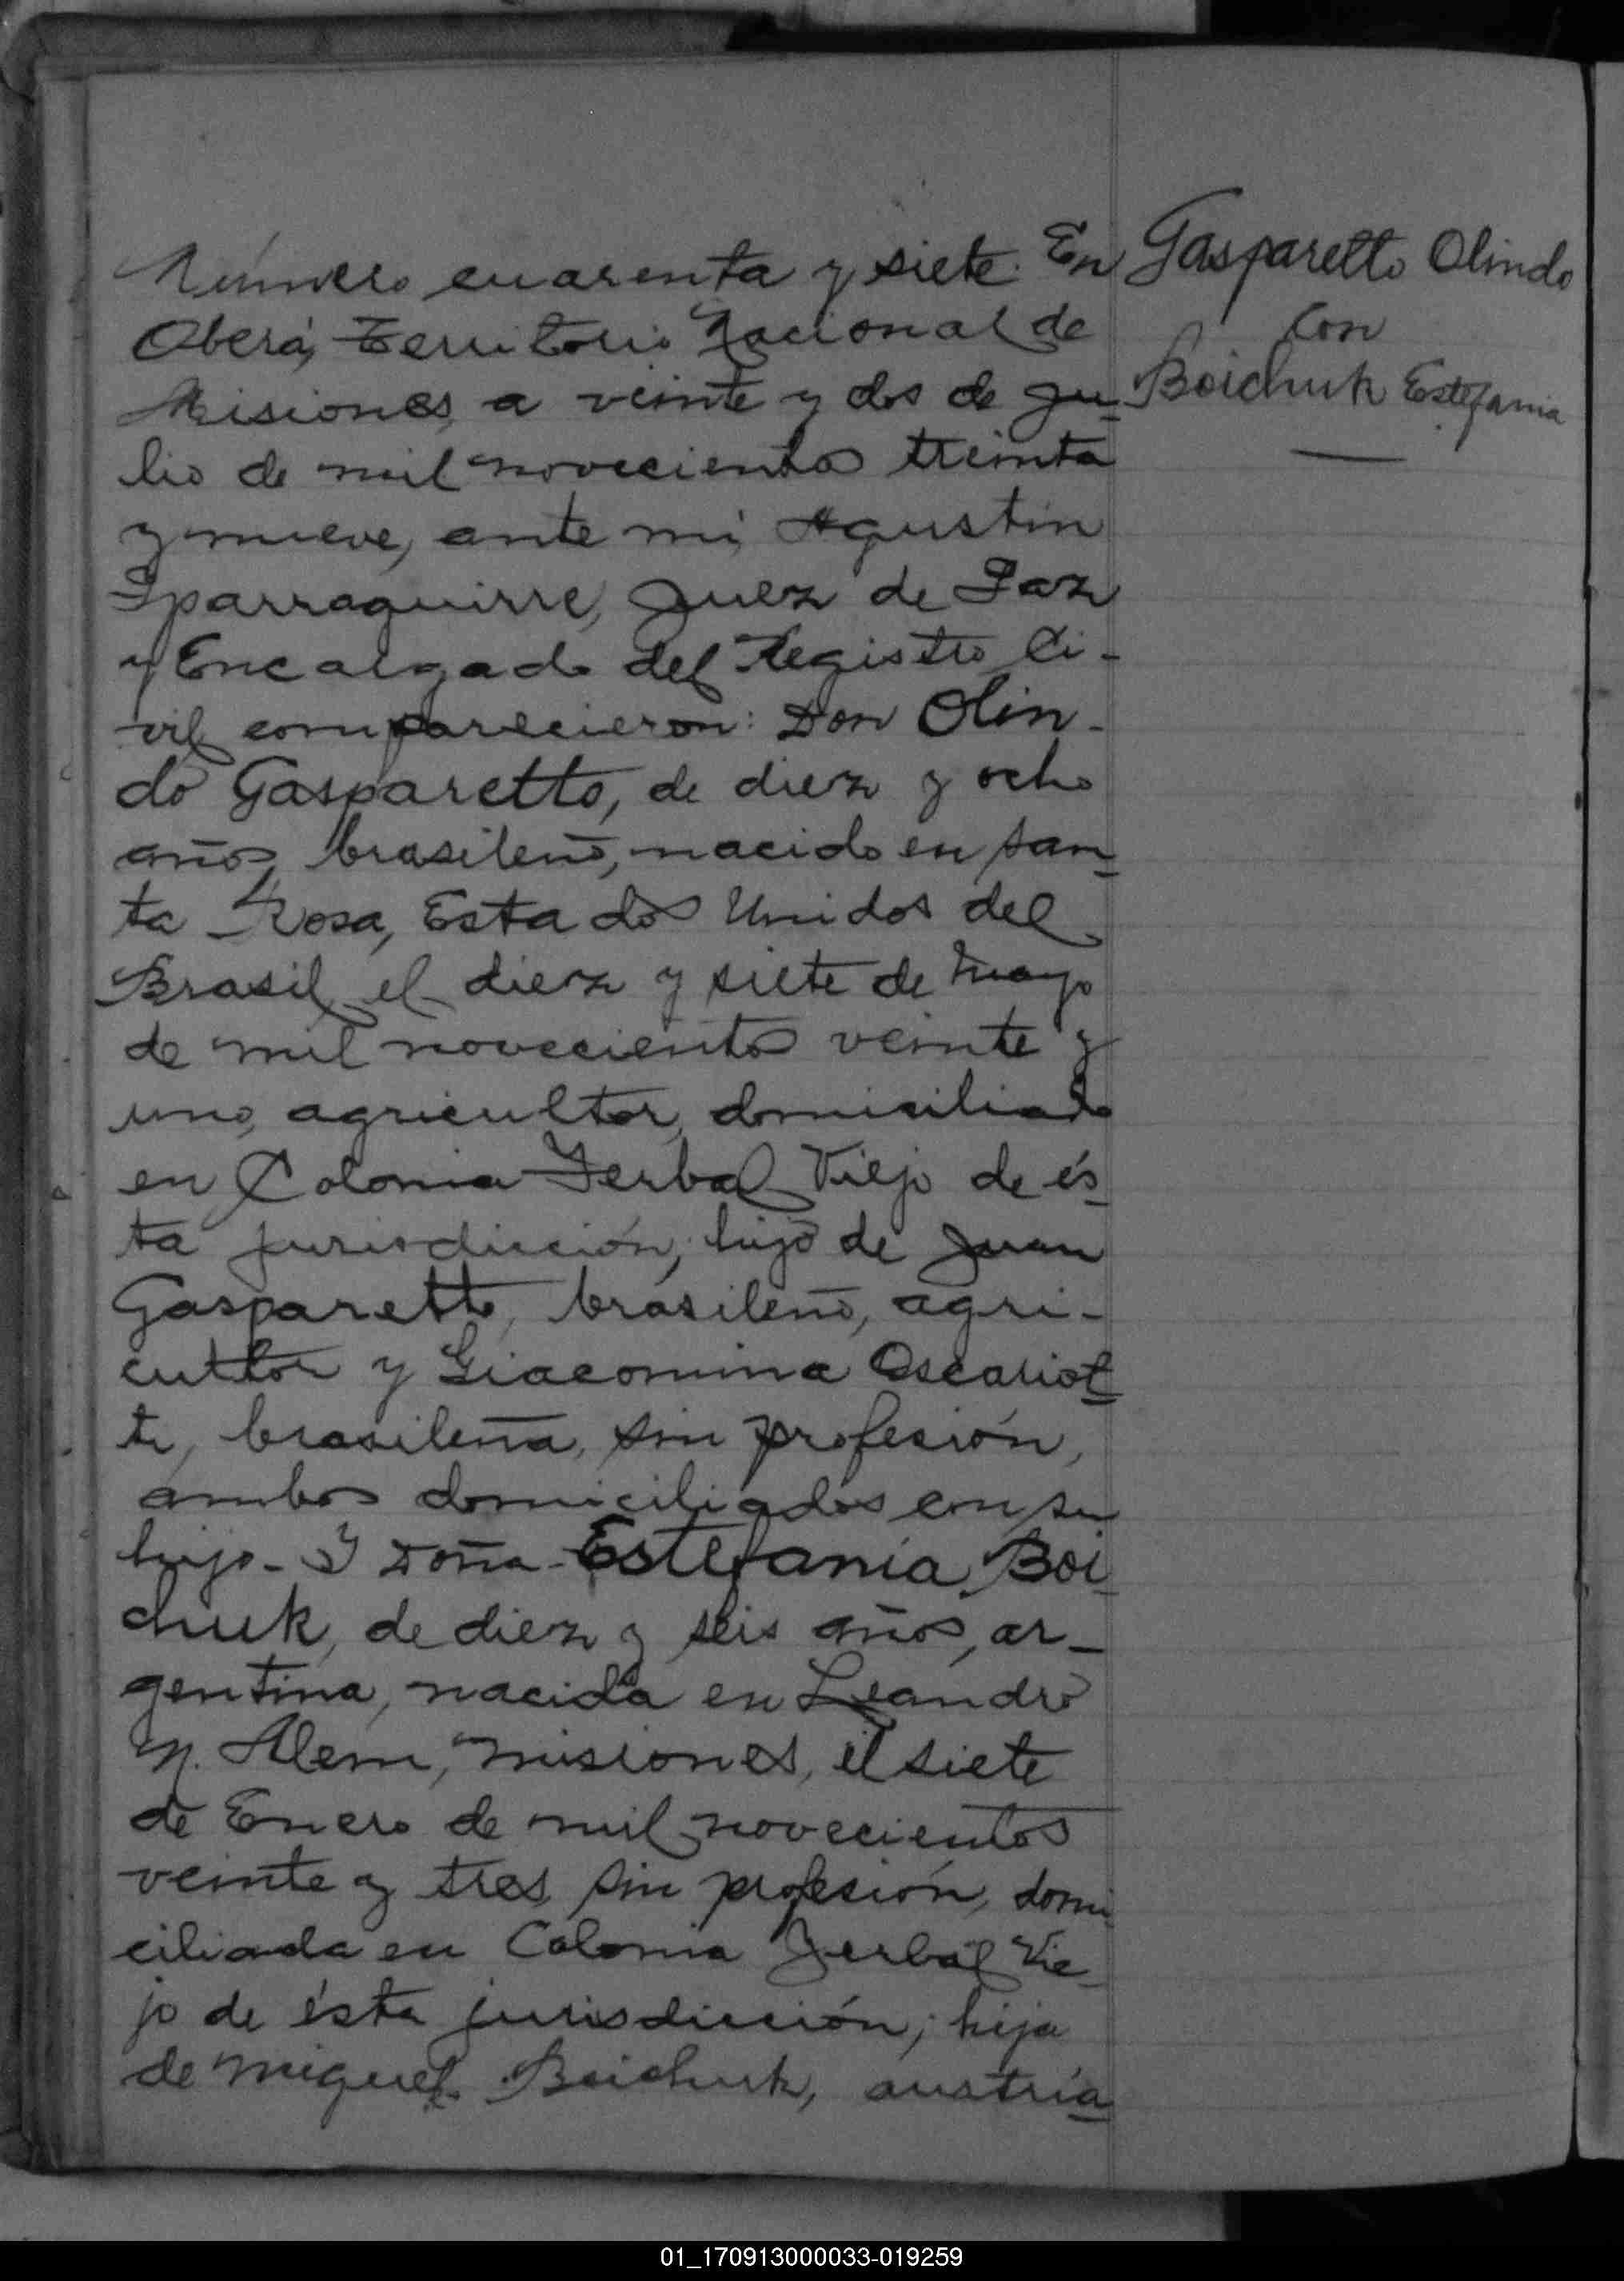 Gasparetto Olindo
con
Boichuk Estefania
Número cuarenta y siete. En
Oberá, Territorio Nacional de
Misiones, a veinte y dos de Ju-
lio de mil novecientos treinta
y nueve, ante mi, Agustin
Iparraguirre, Juez de Paz
y Encargado del Registro Ci-
vil comparecieron: Don Olin-
do Gasparetto, de diez y ocho
años, brasileño, nacido en San-
ta Rosa, Estados Unidos del
Brasil el diez y siete de Mayo
de mil novecientos veinte y
uno, agricultor, domiciliado
en Colonia Yerbal Viejo de és-
ta jurisdicción; hijo de Juan
Gasparetto, brasileño, agri-
cultor y Giacomina Oscariot-
ti, brasileña, sin profesión,
ambos domiciliados con su
hijo - Y Doña - Estefanía Boi-
chuk, de diez y seis años, ar-
gentina, nacida en Leandro
N. Alem, Misiones, el siete
de Enero de mil novecientos
veinte y tres, sin profesión, domi-
ciliada en Colonia Yerbal Vie-
jo de ésta jurisdicción; hija
de Miguel Boichuk, austría-
01_170913000033-019259